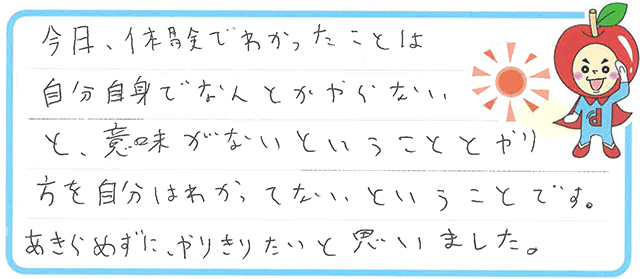 今日、体験でわかったことは
自分自身でなんとかやらない
と、意味がないということとやり
方を自分はわかってないということです。
あきらめずに、やりきりたいと思いました。
d